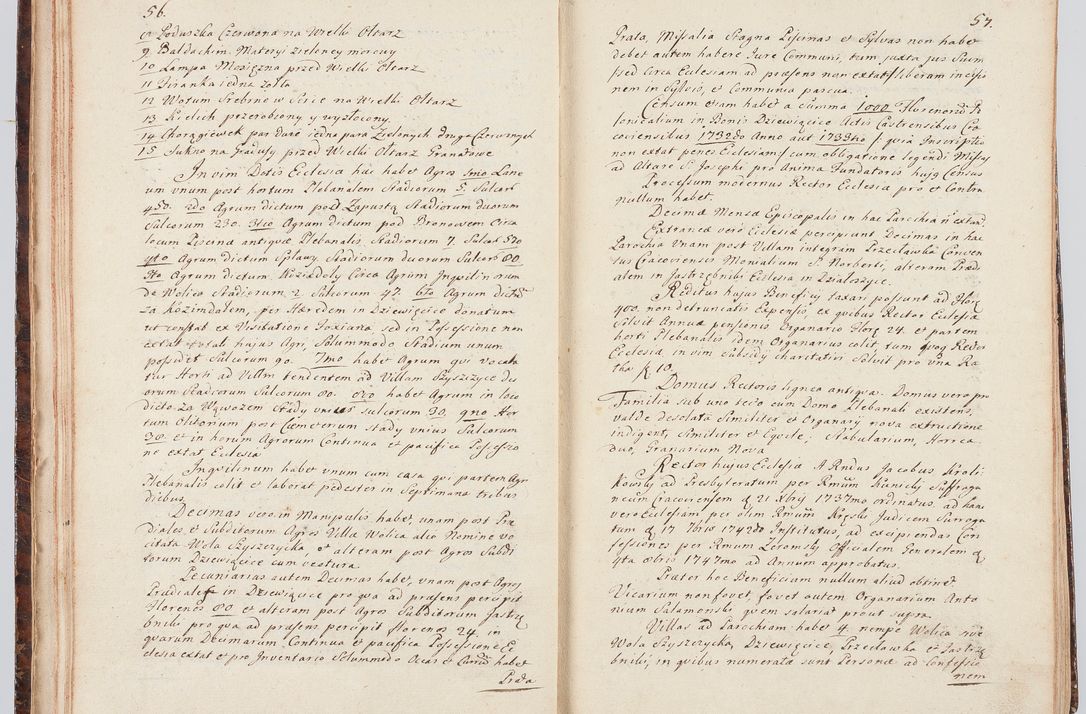 56.
9 Baldachim Materyi zieloney morowy
10 Lampa Mosiężna przed Wielki Ołtarz
11 Firanka iedna żołta
12 Wotum Srebrne w Sercu na Wielki Ołtarz
13 Kielich przerobiony y wyzłocony
14 Chorągiewek par dwie iedna para Zielonych druga Czerwonych
15 Sukno na gradusy przed Wielki Ołtarz Granatowe
In vim Dotis Ecclesia hac habet Agros 1mo Lane
um unum post hortum Plebanalem Stadiorum 5. Sulcorũ
450. 2do Agrum dictum post Zapustą Stadiorum duorum
Sulcorum 230. 3tio Agrum dictum pod Bronowem Circa
locum Piscinæ antiquæ Plebanalis Stadiorum 7. Sulcorũ 570
4to Agrum dictum Spławy Stadiorum duorum Sulcorũ 80.
5to Agrum dictum Niziadoły Circa Agrum Inquilinorum
de Wolica Stadiorum 2 Sulcorum 47. 6to Agrum dictũ
Za Kozimdołem, per Hæredem in Dziewięcice donatum
ut constat ex Visitatione Foxiana, sed in Possessione non
extat total hujus Agri, Solummodo Stadium unum
possidet Sulcorum 90. 7mo habet Agrum qui vocan
tur Horti ad Villam tendentem ad Villam Szyszczyce du
orum Stadiorum Sulcorum 80. 8vo habet Agrum in loco
dicto Za Wąwozem Stady unius sulcorum 30. 9no Hor
tum Olitorium post Cæmeterium Stady unius Sulcorum
30. et in horum Agrorum Continua et pacifica Possessio
ne extat Ecclesia
Inquilinum habet unum cum casa qui partem Agri
Plebanalis colit et laborat pedester in Septimana tribus
diebus.
Decimas vero in Manipulis habet, unam post Præ
diales et Subditorum Agros Villæ Wolica alio Nomine vo
citata Wola Szyszczycka et alteram post Agros Subdi
torum Dziewięcice cum vectura.
Pecuniarias autem Decimas habet, unam post Agros
Prædiales in Dziewięcice pro qua ad præsens percipit
Florenos 80 et alteram post Agros Subditorum Jastrzę
bniki pro qua ad præsens percipit florenos 24, in
quarum Decimarum Continua et pacifica Possessione Ec
clesia extat et pro Inventario Solummodo habet
Prata
57.
Prata, Missalia Stagna Piscinas et Sylvas non habet
debet autem habere Jure Communi, tum juxta jus Suum
sed Circa Ecclesiam ad præsens non extat liberam incisio
nem in Sylvis, et Communia pascua.
Censum etiam habet a summa 1000 Florenorũ
in Bonis Dziewięcice Actis Castrensibus Cra
coviensibus 1732do Anno aut 1733tio quia Inscriptio
non extat penes Ecclesiam cum obligatione legendi Missas
ad Altare S. Josephi pro Anima Fundatoris hujus Census
Processum modernus Rector Ecclesiæ pro et Contra
nullum habet.
Decimæ Mensæ Episcopalis in hac Parochia ñ extant.
Extraneæ vero Ecclesiæ percipiunt Decimas in hac
Parochia Unam post Villam integram Przecławka Conven
tus Cracoviensis Monialium S. Norberti, alteram Præd
alem in Jastrzębniki Ecclesia in Działoszyce.
Reditus hujus Beneficy taxari possunt ad Flor
400. non detruncatis Expensis, ex quibus Rector Ecclesiæ
Solvit Annuæ pensionis Organario Flor 24. et partem
horti Plebanalis idem Organarius colit, tum quoq Rector
Ecclesiæ in vim Subsidy charitativi Solvit pro una Ra
tha 10.
Domus Rectoris lignea antiqua. Domus vero pro
Familia sub uno tecto cum Domo Plebanali existens,
valde desolata Similiter et Organary nova extructione
indigent, Similiter et Equile; Stabularium, Horrea
duo, Granarium Nova
Rector hujus Ecclesiæ ARndus Jacobus Kroli
kowski ad Presbyteratum per Rmum Kunicki Suffraga
neum Cracoviensem d 21 Xbris 1737mo ordinatus, ad hanc
vero Ecclesiam per olim Rmum Judicem Surroga
tum d 17 7bris 1742do Institutus, ad excipiendas Con
fessiones per Rmum Officialem Generalem d
4ta 8bris 1747mo ad Annum approbatus.
Præter hoc Beneficium nullum aliud obtinet
Vicarium non fovet, fovet autem Organarium Anto
nium Salamonski quem salariat prout supra.
Villas ad Parochiam habet 4 nempe Wolica sive
Wola Szyszczycka, Dziewięcice, Przecławka et Jastrzę
bniki, in quibus numerata sunt Personæ ad Confessio
nem